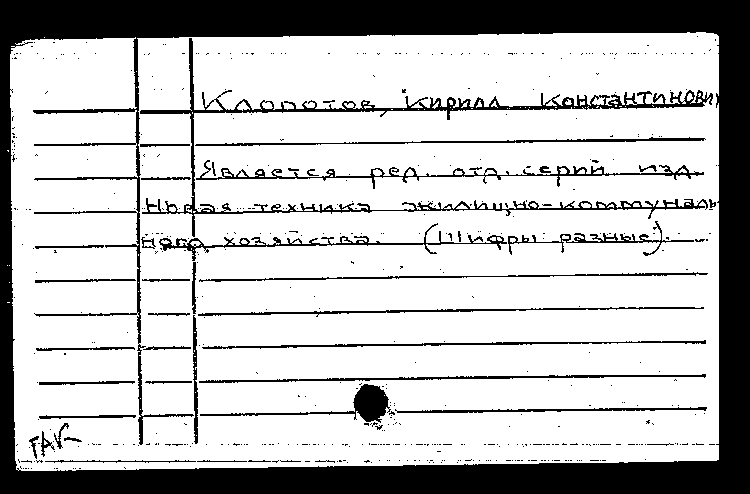 Клопотов, Кирилл Константинови
Является ред. отд. серий изд.
Новая техника жилищно-коммуналь
ного хозяйства. (Шифры разные).